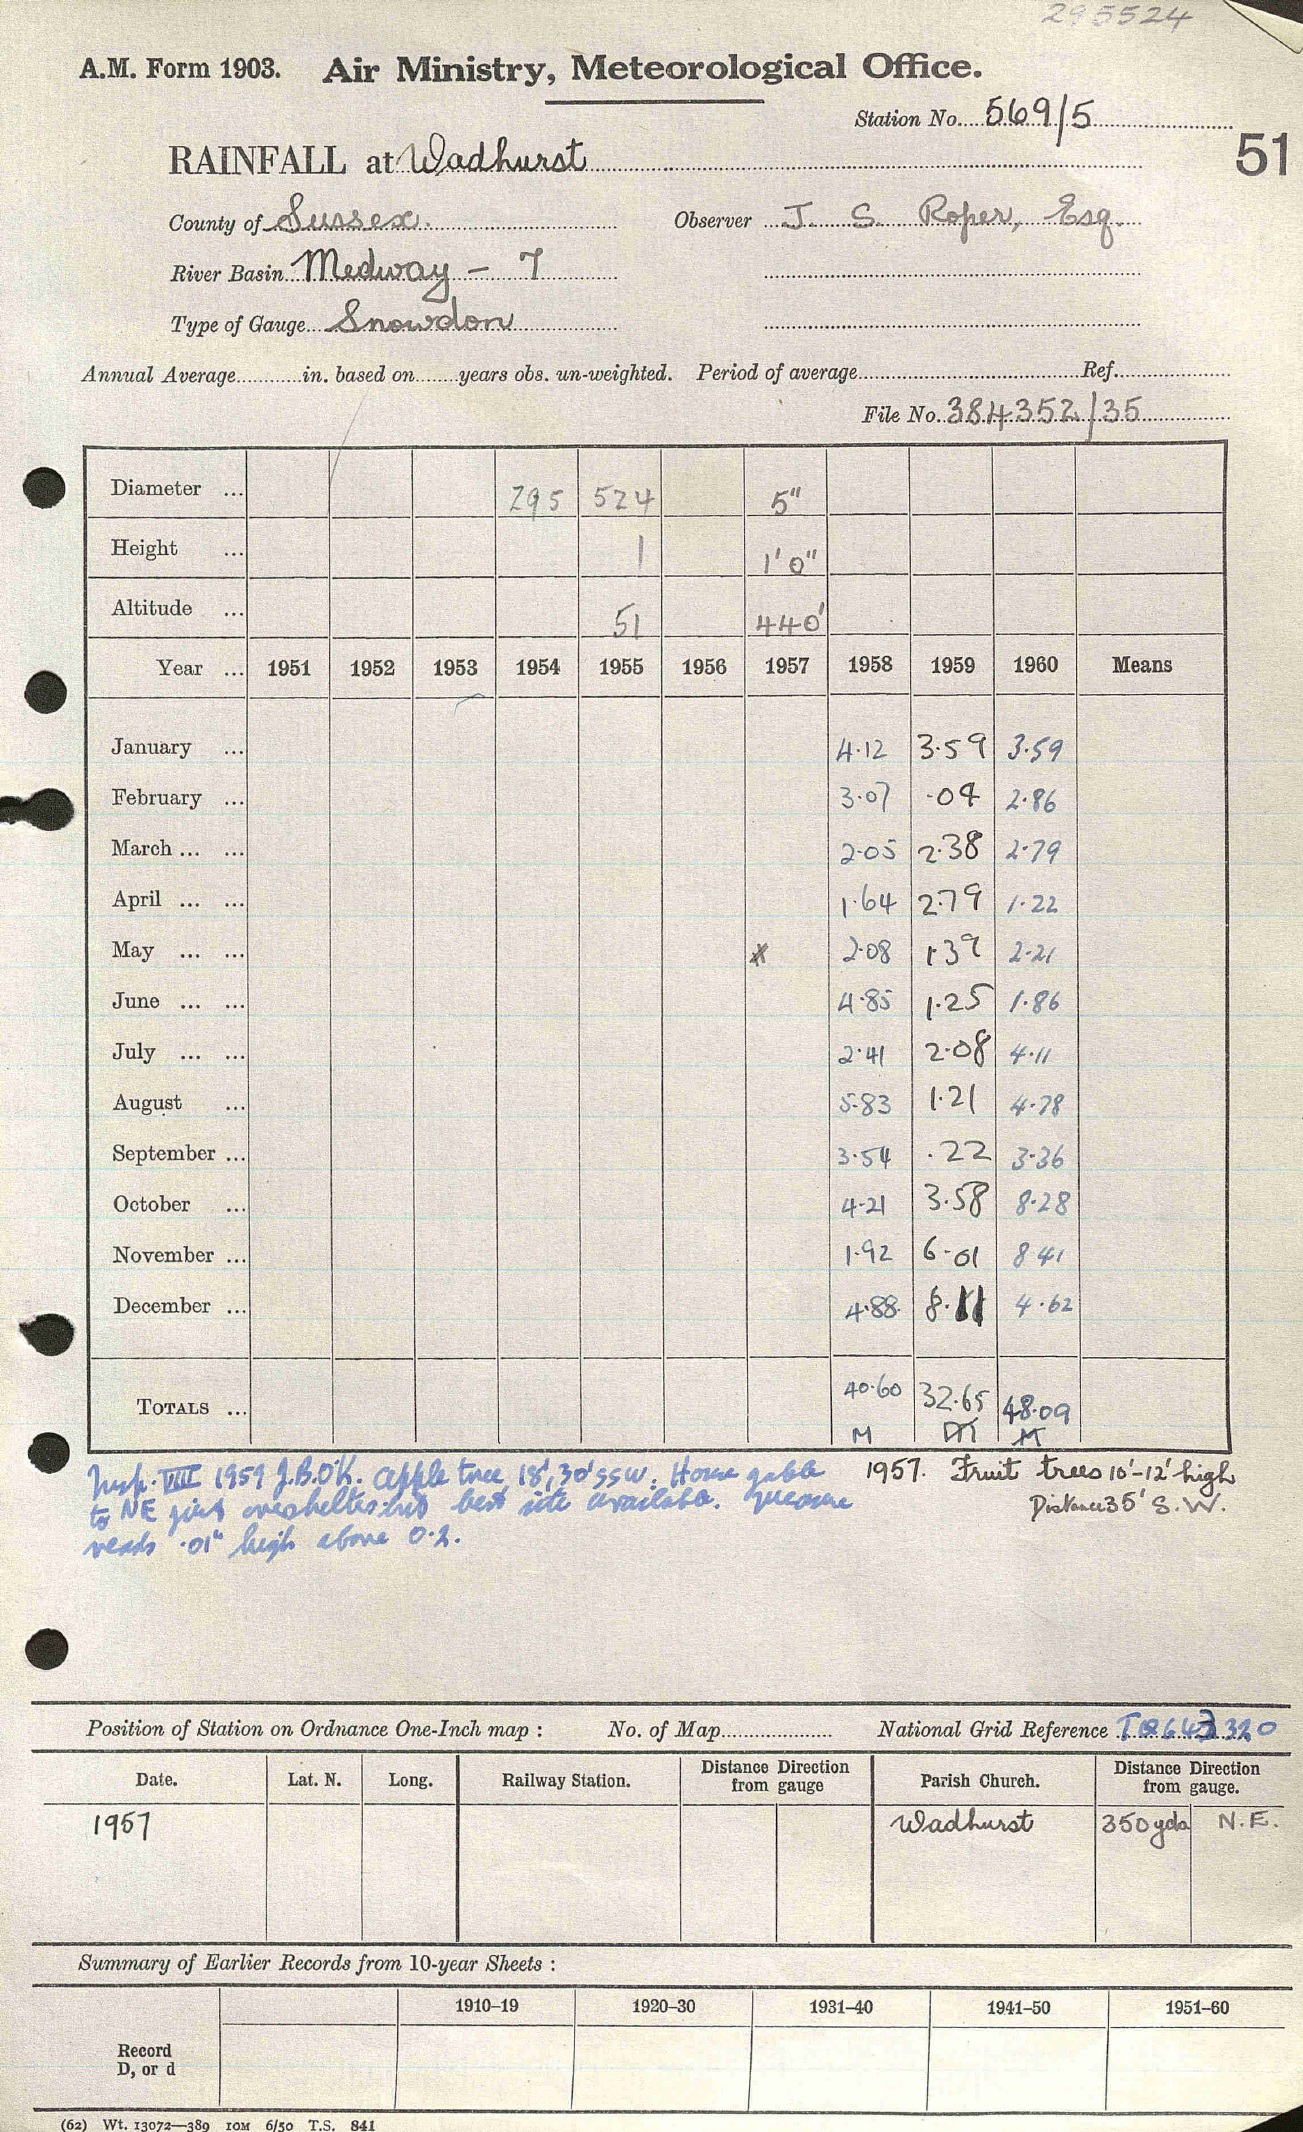 295524
A.M. Form 1903. Air Ministry, Meteorological Office.
Station No. 569/5
51
RAINFALL at Wadhurst
County of Sussex. Observer J. S. Roper, Esq.
River Basin Medway - 7
Type of Gauge Snowdon
Annual Average in. based on years obs. un-weighted. Period of average Ref.
File No. 384352/35
Diameter ... 295 524 5"
Height ... 1 1' 0"
Altitude ... 51 440'
Year ... 1951 1952 1953 1954 1955 1956 1957 1958 1959 1960 Means
January ... 4.12 3.59 3.59
February ... 3.07 .04 2.86
March ... ... 2.05 2.38 2.79
April ... ... 1.64 2.79 1.22
May ... ... x 2.08 1.39 2.21
June ... ... 4.85 1.25 1.86
July ... ... 2.41 2.08 4.11
August ... 5.83 1.21 4.78
September ... 3.54 .22 3.36
October ... 4.21 3.58 8.28
November ... 1.92 6.01 8 41
December ... 4.88 8.11 4.62
TOTALS ... 40.60 32.65 48.09
M M M
Insp. VIII 1959 J.B. O'K. apple tree 18', 30' SSW. House gable
to NE just overshelters but best site available. measure
reads .01" high above 0.2.
1957. Fruit trees 10'-12' high
Distance 35' S.W.
Position of Station on Ordnance One-Inch map : No. of Map National Grid Reference TQ 643 320
Date. Lat. N. Long. Railway Station. Distance Direction from gauge Parish Church. Distance Direction from gauge.
1957 Wadhurst 350 yds N.E.
Summary of Earlier Records from 10-year Sheets :
1910–19 1920–30 1931–40 1941–50 1951–60
Record
D, or d
(62) Wt. 13072—389 10M 6/50 T.S. 841